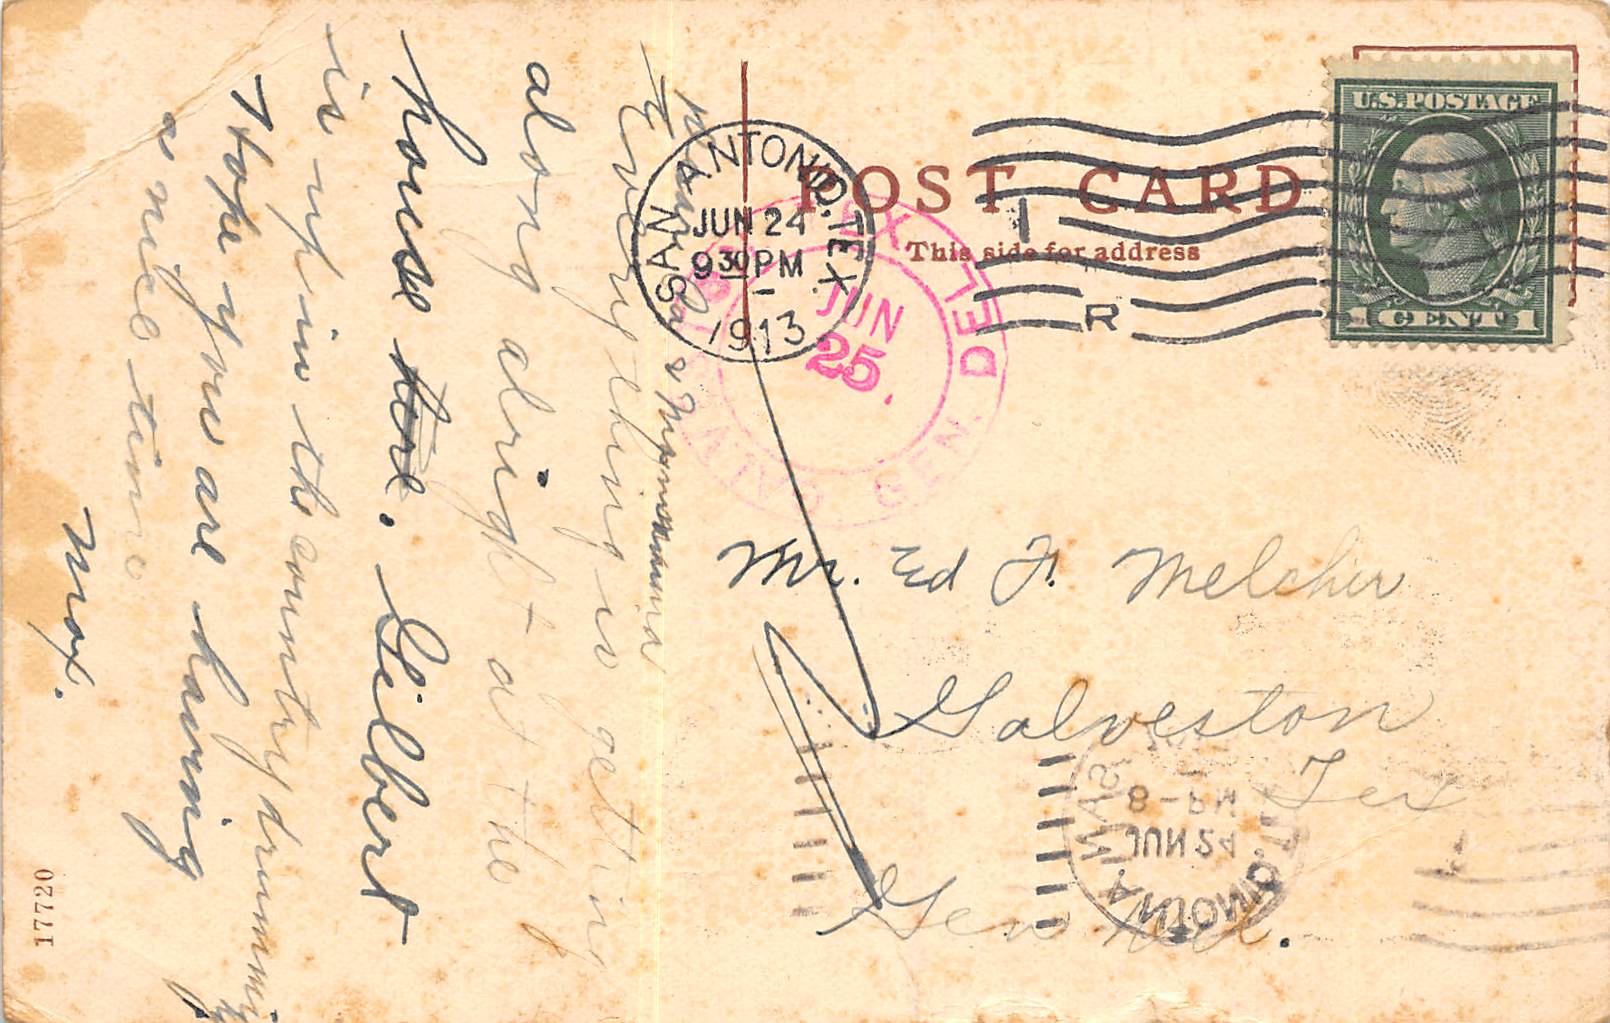 Papa & Mamma
Everything is getting
along alright at the
house here. Gilbert
is up in the country drumming
I hope you are having
a nice time
Max.
17720
POST CARD
This side for address
U.S. POSTAGE
1 CENT 1
SAN ANTONIO, TEX.
JUN 24
9 30 PM
1913
1
R
TEX
GEN. DEL
JUN
25
Mr. Ed F. Melcher
Galveston
Tex
Gen Del.
SAN ANTONIO, T
JUN 24
8 - PM